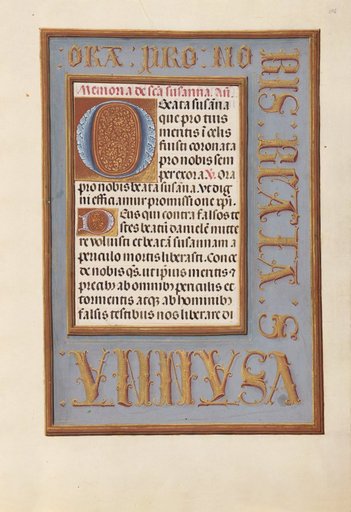 ORA : PRO : NO
BIS . BEATA . S
VSANNA :
Memoria de scā susanna. Añ.
O Beata susāna
que pro tuis
meritis ī celis
fuisti coronata
pro nobis sem
per exora. V̷. Ora
pro nobis beata susāna. vt dig
ni efficiamur promissione xp̄i.
Deus qui contra falsos te
stes beatū danielē mitte
re voluisti et beatā susannam a
periculo mortis liberasti. Conce
de nobis qs̄. ut ipius meritis ⁊
precib⁹ ab omnib⁹ periculis et
tormentis atq₃ ab hominib⁹
falsis testibus nos liberare di